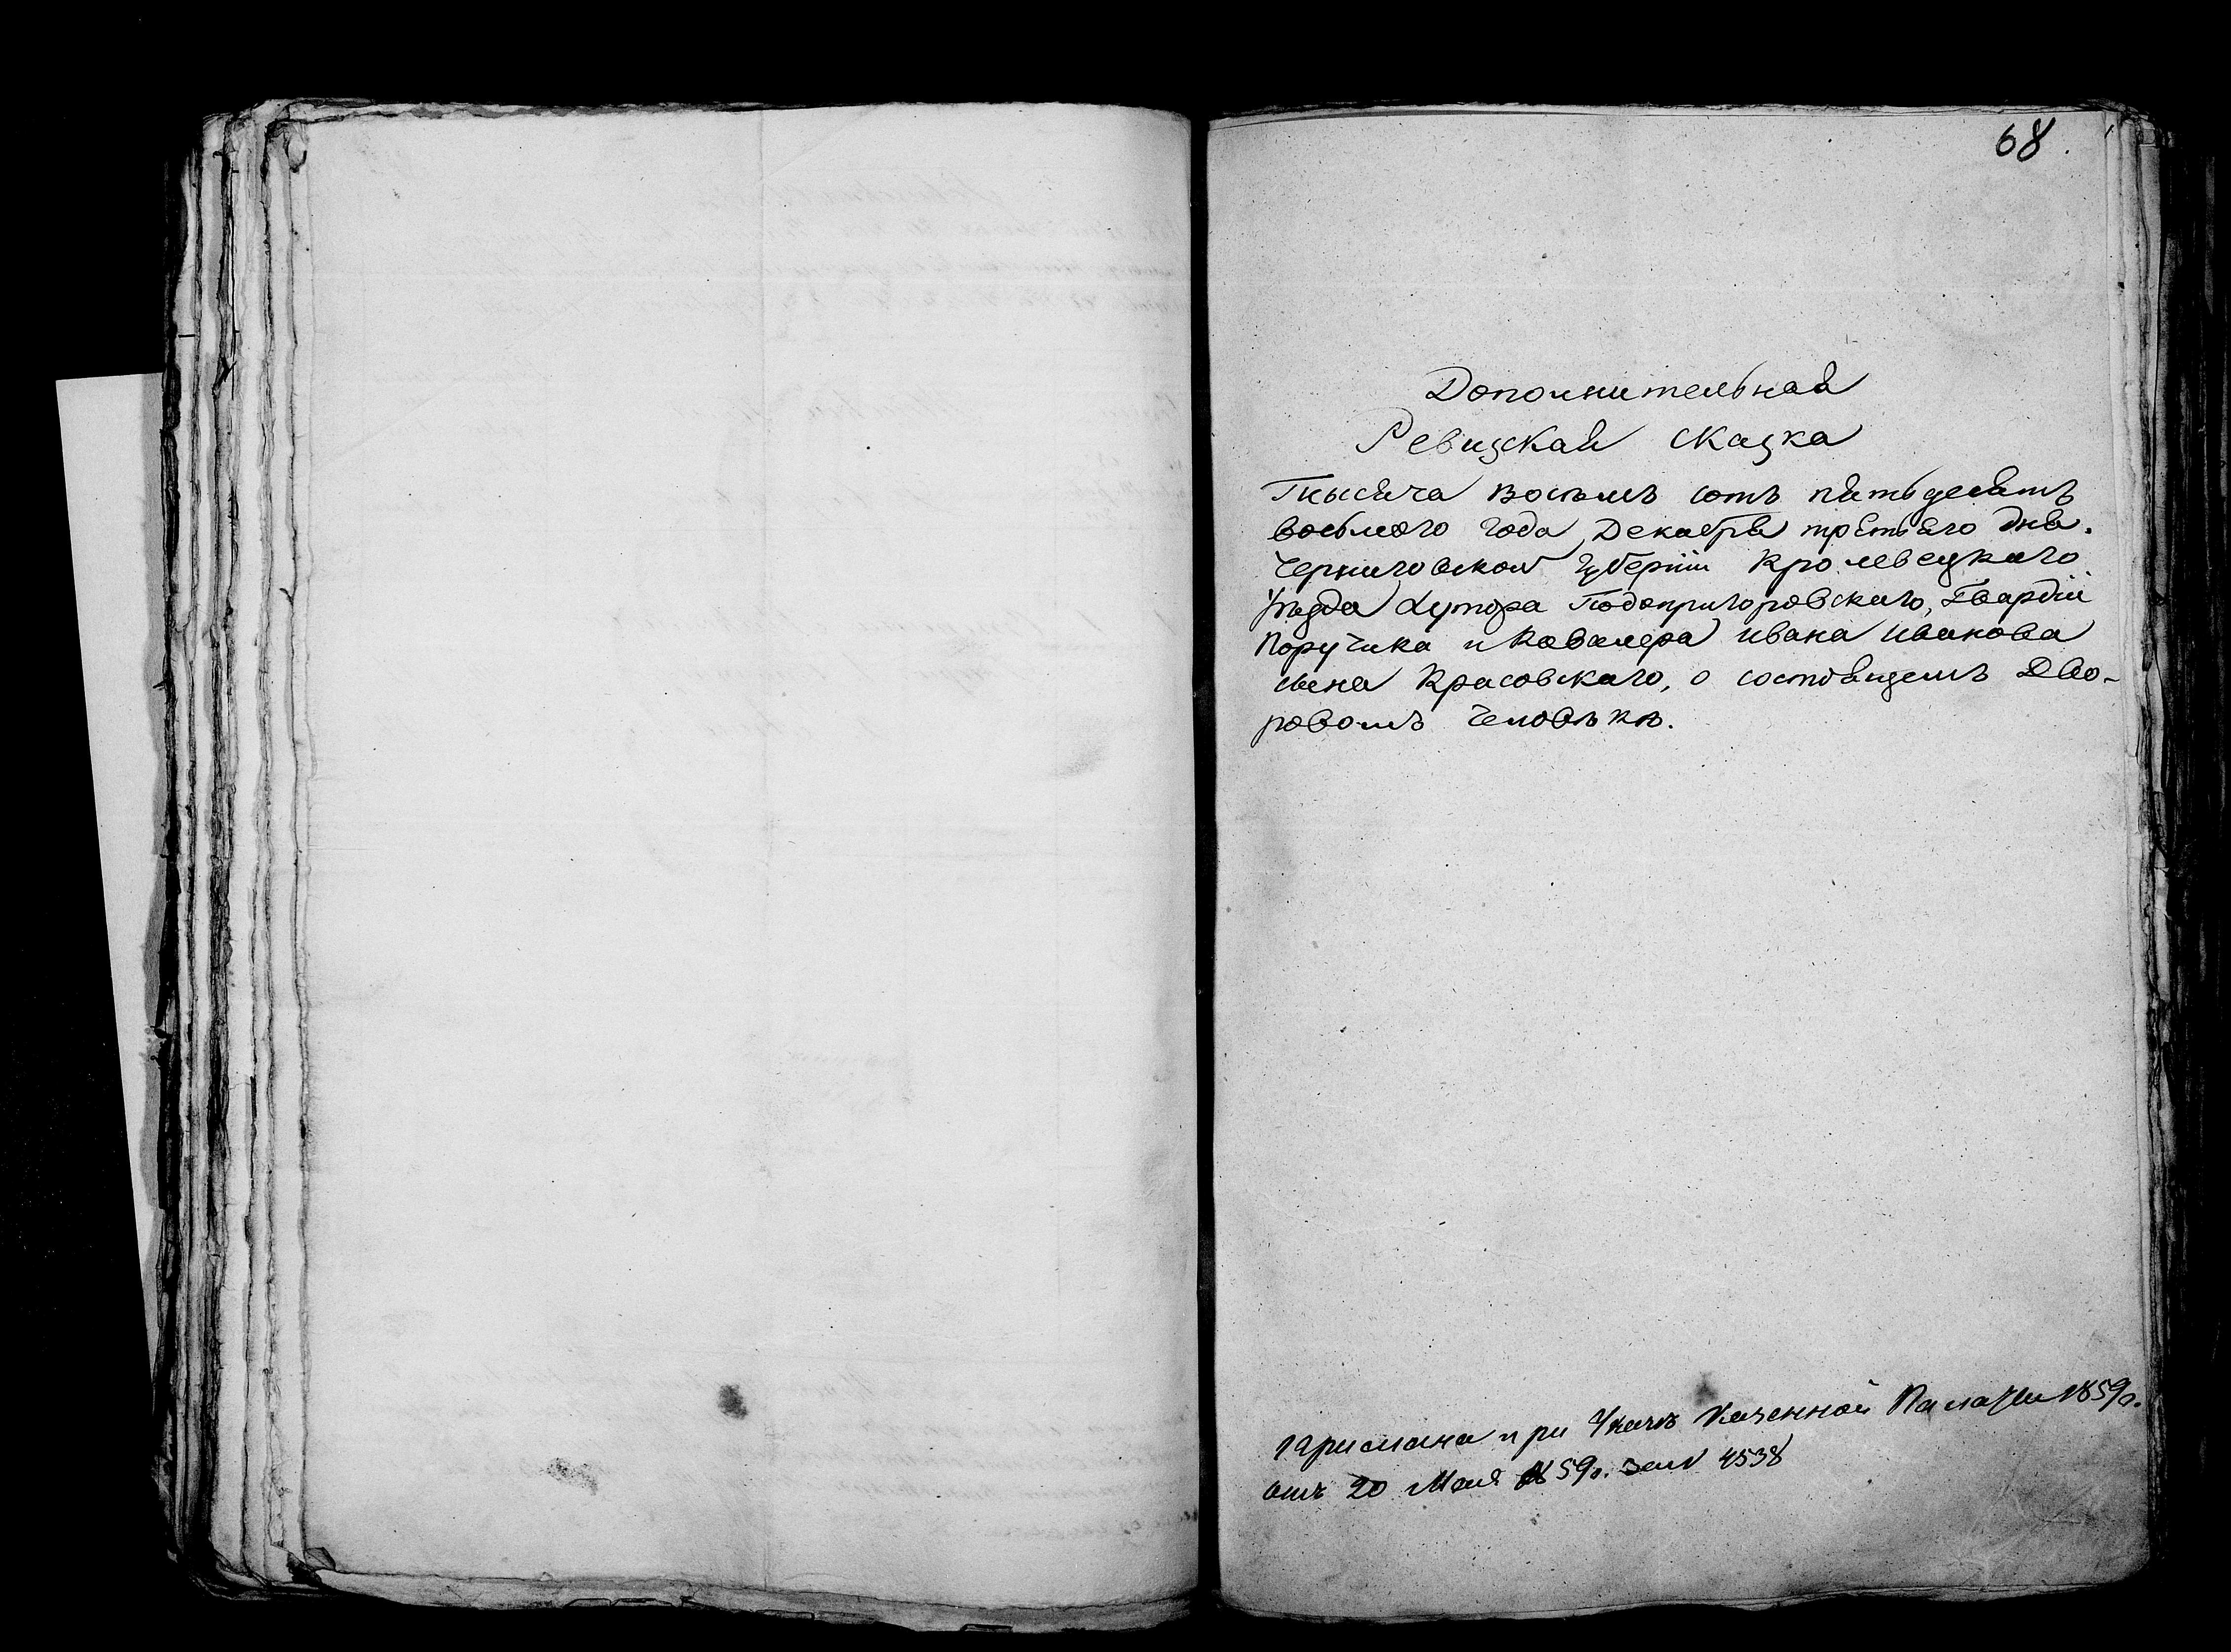 68.
Дополнительная
Ревизская Сказка
Тысяча восемь сотъ пятьдесятъ
восьмого года, Декабря третьяго дня.
Черниговской Губерніи Кролевецкаго
Уѣзда Хутора Подопригоровскаго, Гвардіи
Поручика и Кавалера Ивана Иванова
сына Красовскаго, о состоящемъ Дво-
ровомъ Человѣкѣ.
Прислана при Указѣ Казенной Палаты 1859г.
отъ 20 Мая 59г. за № 4538